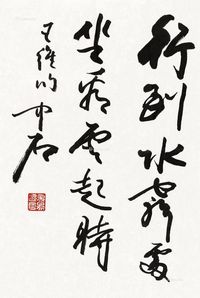 行到水穷处
坐看云起时
王维句
中石